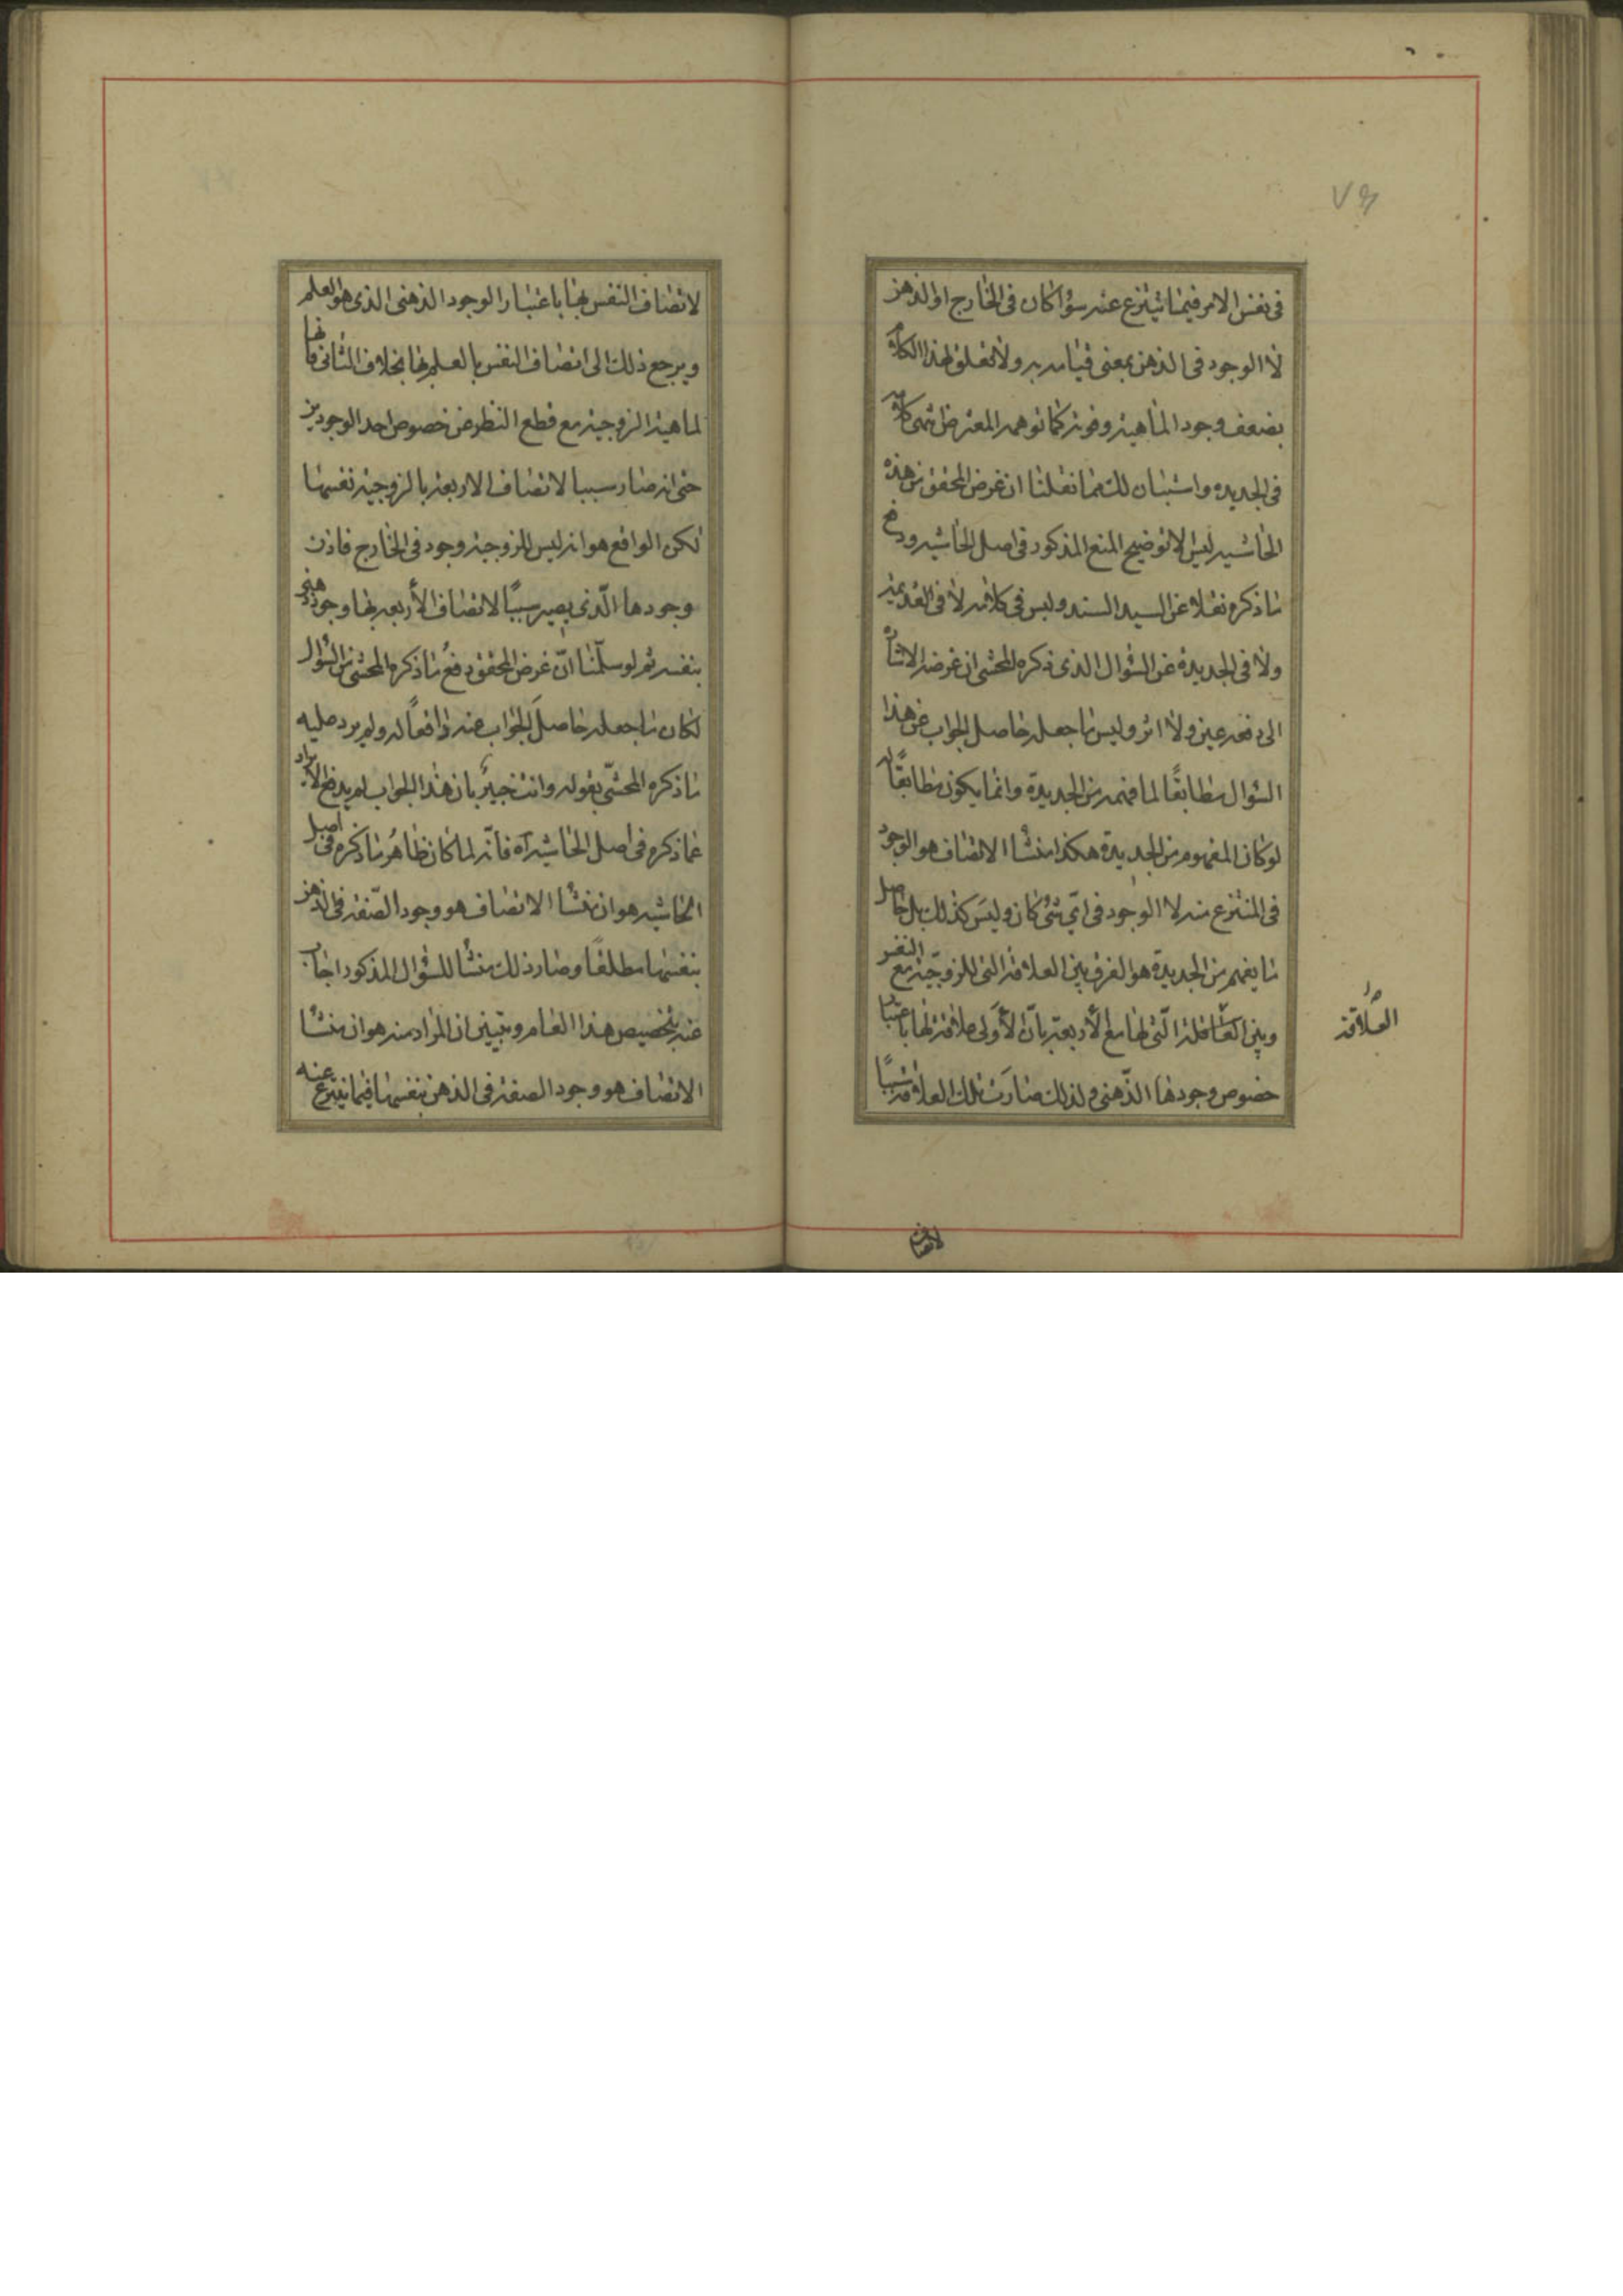 ٧٦
في نفس الامر فيما ينتزع عنه سواء كان في الخارج او الذهن
لا الوجود في الذهن بمعنى قيامه به ولا تعلق لهذا الكلام
بضعف وجود الماهية وقوته كما توهمه المعترض انتهى كلامه
في الجديدة واستبان لك مما نقلنا ان غرض المحقق من هذه
الحاشية ليس الا توضيح المنع المذكور في اصل الحاشية ودفع
ما ذكره نقلا عن السيد السند وليس في كلامه لا في القديمة
ولا في الجديدة عن السؤال الذي ذكره المحشي ان غرضه الاشارة
الى دفعه عين ولا اثر وليس ما جعله حاصل الجواب عن هذا
السؤال مطابقًا لما فهم من الجديدة وانما يكون مطابقًا له
لو كان المفهوم من الجديدة هكذا منشأ الاتصاف هو الوجود
في المنتزع منه لا الوجود في ايّ شئ كان وليس كذلك بل حاصل
ما يفهم من الجديدة هو الفرق بين العلاقة التي للزوجيّة مع النفس
وبين العلاقة الّتي لها مع الأربعة بانّ الأولى علاقة لها باعتبار
خصوص وجودها الذّهني ولذلك صارت تلك العلاقة سببًا
العلاقة
لاتصاف
لاتصاف النفس بها باعتبار الوجود الذهني الذي هو العلم
ويرجع ذلك الى اتصاف النفس بالعلم بها بخلاف الثاني فانها
لماهية الزوجية مع قطع النظر عن خصوص احد الوجودين
حتى انه صار سببا لاتصاف الاربعة بالزوجية نفسها
لكن الواقع هو انه ليس للزوجية وجود في الخارج فاذن
وجودها الّذي يصير سببًا لاتصاف الأربعة بها وجود ذهني
بنفسه ثم لو سلّمنا انّ غرض المحقق دفع ما ذكره المحشي من السؤال
لكان ما جعله حاصل الجواب عنه دافعًا له ولم يرد عليه
ما ذكره المحشّي بقوله وانت خبير بان هذا الجواب لم يدفع الايراد
عما ذكره في اصل الحاشية آه فانّه لما كان ظاهر ما ذكره في اصل
الحاشية هو ان منشأ الاتصاف هو وجود الصّفة في الذهن
بنفسها مطلقًا وصار ذلك منشأ للسؤال المذكور اجاب
عنه بتخصيص هذا العام وتبيين ان المراد منه هو ان منشأ
الاتصاف هو وجود الصفة في الذهن بنفسها فيما ينتزع عنه